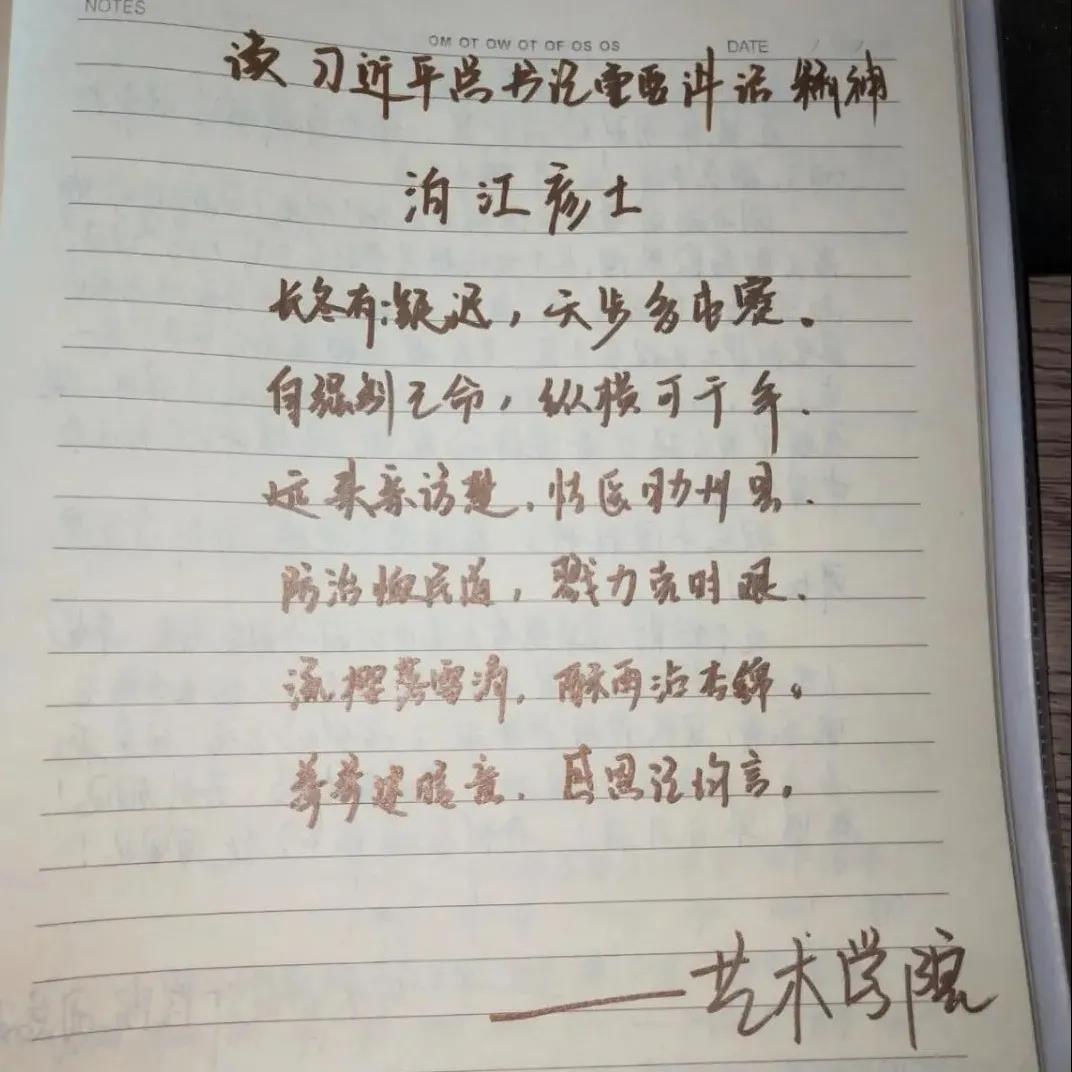 NOTES
OM OT OW OT OF OS OS DATE / /
读习近平总书记重要讲话精神
泊江彦士
长冬有凝迟，天步多屯蹇。
自强制之命，纵横可千年.
远来亲访楚，情医助州县.
防治恤民道，戮力克时艰.
流樱落雪消，酥雨沾杏锦。
梦梦建瞻意，感恩泣均言。
——艺术学院